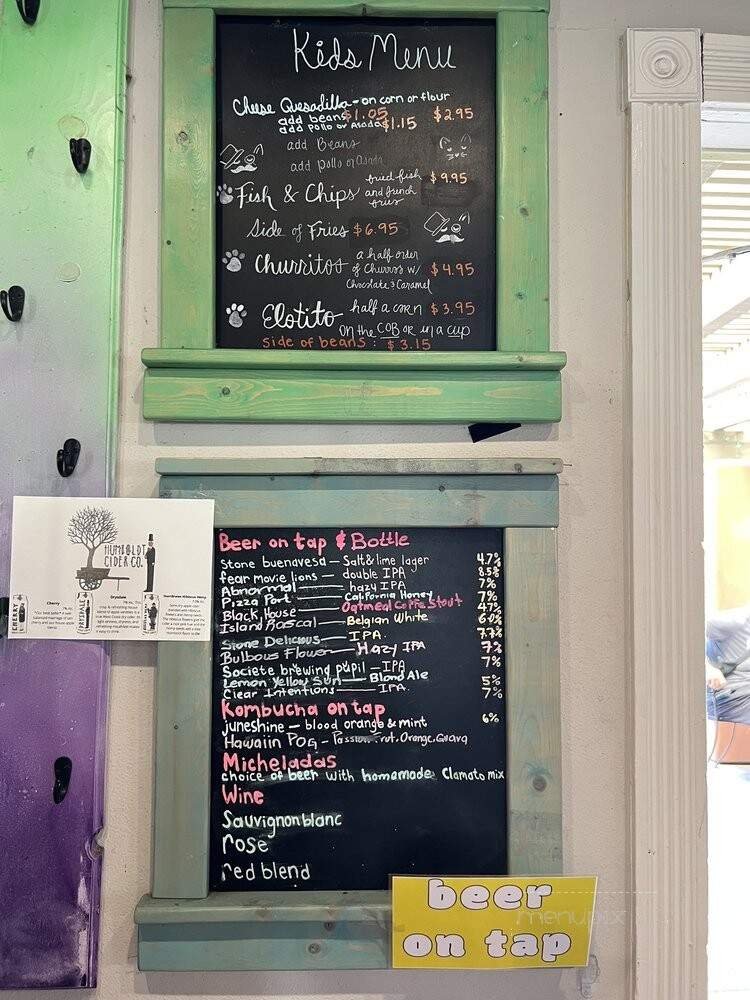 Kids Menu
Cheese Quesadilla - on corn or flour
add beans $1.05 $2.95
add pollo or Asada $1.15
add Beans
add pollo or Asada
fried fish $9.95
Fish & Chips and french
fries
Side of Fries $6.95
Churritos a half order
of Churros w/ $4.95
Chocolate & Caramel
Elotito half a corn $3.95
on the COB or in a cup
side of beans : $3.15
HUMBOLDT
CIDER CO.
Cherry
Beer on tap & Bottle
Stone buenavesa — Salt & lime lager 4.7%
fear movie lions — double IPA 8.5%
Abnormal — hazy IPA 7%
Pizza Port — California Honey 7%
Black House — Oatmeal Coffe Stout
Island Rascal — Belgian White
Stone Delicious — IPA.
Bulbous Flower — Hazy IPA 7%
Societe brewing pupil — IPA 7%
Lemon Yellow Sun — Blond Ale 5%
Clear Intentions — IPA. 7%
Kombucha on tap
juneshine — blood orange & mint 6%
Hawaiin POG - Orange, Guava
Micheladas
choice of beer with homemade Clamato mix
Wine
Sauvignon blanc
rose
red blend
beer
on tap
menupix